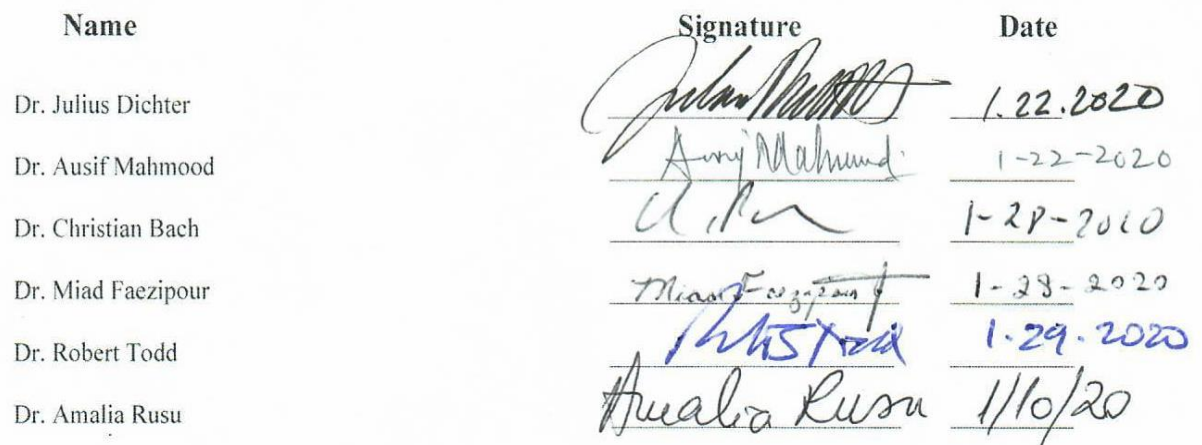 Name Signature Date
Dr. Julius Dichter 1.22.2020
Dr. Ausif Mahmood Mahmood 1-22-2020
Dr. Christian Bach
Dr. Miad Faezipour Miad Faezipour 1-28-2020
Dr. Robert Todd Todd 1.29.2020
Dr. Amalia Rusu Amalia Rusu 1/10/20